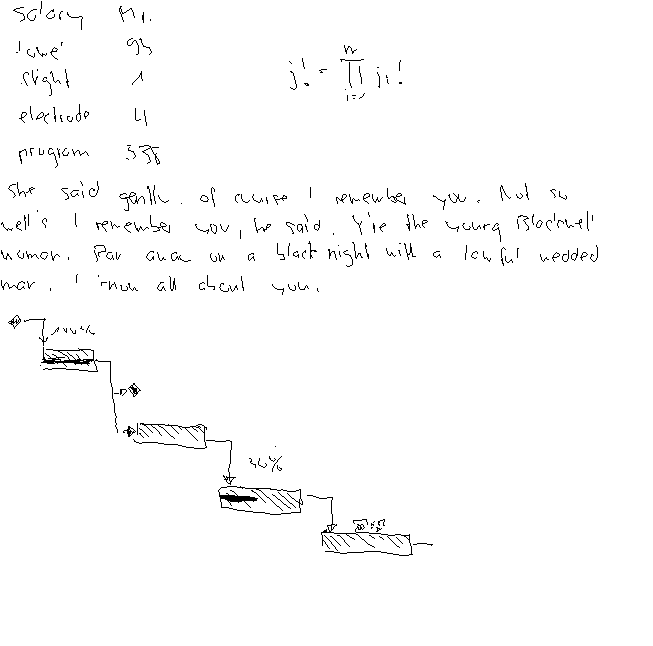 salary M1.
'owe' 94
slight 1
electrode 4
program 338
j! = ∏ i=1 n ji!
She said gently. of course I remember you. Not so
well's I remember you, he said. Y're the young Blackwell
woman. Ran away on a black night with a lawful wedded
man. I know all about you.
100%
30%